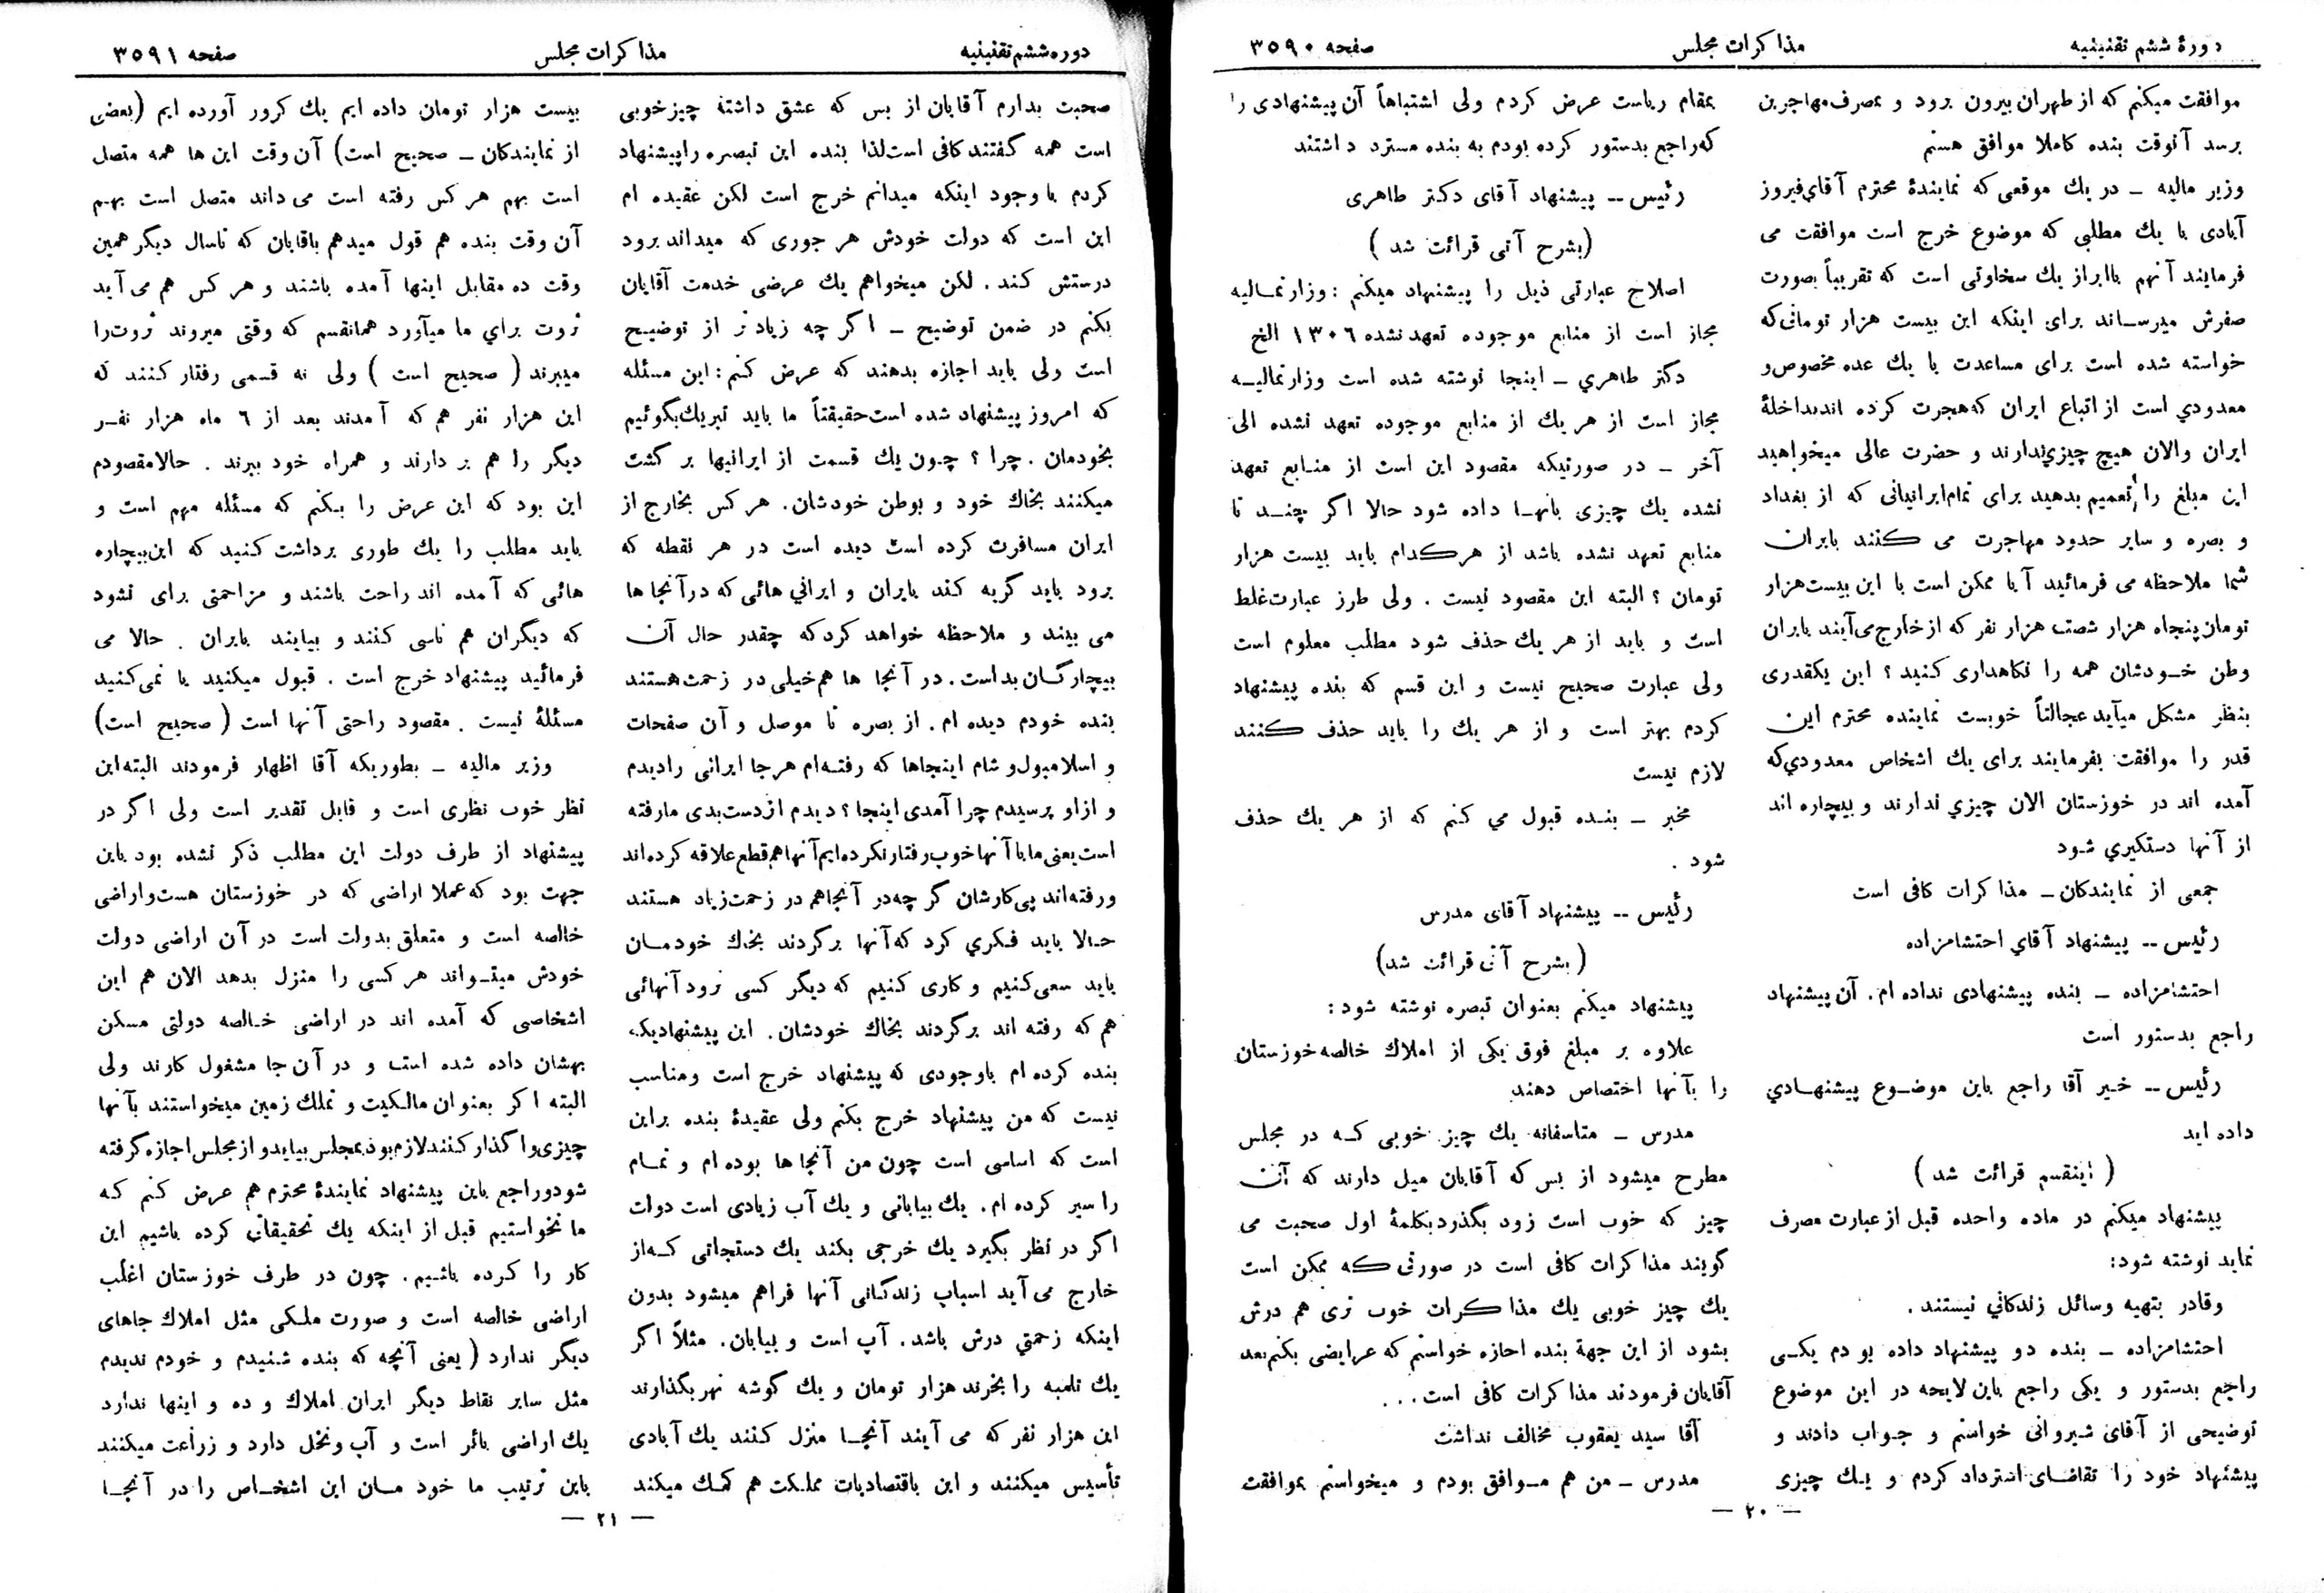 دورهٔ ششم تقنینیه
مذاکرات مجلس
صفحه ۳۵۹۰
موافقت میکنم که از طهران بیرون برود و بمصرف مهاجرین
برسد آنوقت بنده کاملا موافق هستم
وزیر مالیه ـ در یك موقعی که نمایندهٔ محترم آقای فیروز
آبادی با یك مطلبی که موضوع خرج است موافقت می
فرمایند آنهم باابراز یك سخاوتی است که تقریباً بصورت
صفرش میرســاند برای اینکه این بیست هزار تومانی که
خواسته شده است برای مساعدت با یك عده مخصوص و
معدودي است از اتباع ایران که هجرت کرده اند بداخلهٔ
ایران والان هیچ چیزي ندارند و حضرت عالی میخواهید
این مبلغ را تعمیم بدهید برای تمام ایرانیانی که از بغداد
و بصره و سایر حدود مهاجرت می کنند بایران
شما ملاحظه می فرمائید آیا ممکن است با این بیست هزار
تومان پنجاه هزار شصت هزار نفر که از خارج می آیند بایران
وطن خــودشان همه را نگاهداری کنید ؟ این یکقدری
بنظر مشکل میآید عجالتاً خوبست نماینده محترم این
قدر را موافقت بفرمایند برای یك اشخاص معدودي که
آمده اند در خوزستان الان چیزي ندارند و بیچاره اند
از آنها دستگیري شود
جمعی از نمایندکان ـ مذاکرات کافی است
رئیس -- پیشنهاد آقاي احتشامزاده
احتشامزاده ـ بنده پیشنهادی نداده ام . آن پیشنهاد
راجع بدستور است
رئیس -- خـیر آقا راجع باین موضــوع پیشنهــادي
داده اید
( اینقسم قرائت شد )
پیشنهاد میکنم در ماده واحده قبل از عبارت مصرف
نماید نوشته شود :
وقادر بتهیه وسائل زندکاني نیستند .
احتشامزاده ـ بنده دو پیشنهاد داده بودم یکــی
راجع بدستور و یکی راجع باین لایحه در این موضوع
توضیحی از آقای شیروانی خواستم و جـواب دادند و
پیشنهاد خود را تقاضـای استرداد کردم و یـك چیزی
بمقام ریاست عرض کردم ولی اشتباهاً آن پیشنهادی را
که راجع بدستور کرده بودم به بنده مسترد داشتند
رئیس -- پیشنهاد آقای دکتر طاهری
(بشرح آتی قرائت شد )
اصلاح عبارتی ذیل را پیشنهاد میکنم : وزارتمـالیه
مجاز است از منابع موجوده تعهد نشده ۱۳۰۶ الخ
دکتر طاهري ـ اینجا نوشته شده است وزارتمالیــه
مجاز است از هر یك از منابع موجوده تعهد نشده الی
آخر ـ در صورتیکه مقصود این است از منـابع تعهد
نشده یك چیزی بآنهــا داده شود حالا اکر چنــد تا
منابع تعهد نشده باشد از هرکدام باید بیست هزار
تومان ؟ البته این مقصود نیست . ولی طرز عبارت غلط
است و باید از هر یك حذف شود مطلب معلوم است
ولی عبارت صحیح نیست و این قسم که بنده پیشنهاد
کردم بهتر است و از هر یك را باید حذف کنند
لازم نیست
مخبر ـ بنـده قبول مي کنم که از هر یك حذف
شود .
رئیس -- پیشنهاد آقای مدرس
( بشرح آتی قرائت شد)
پیشنهاد میکنم بعنوان تبصره نوشته شود :
علاوه بر مبلغ فوق یکی از املاك خالصه خوزستان
را بآنها اختصاص دهند
مدرس ـ متاسفانه یك چیز خوبی کـه در مجلس
مطرح میشود از بس که آقایان میل دارند که آن
چیز که خوب است زود بگذرد بکلمهٔ اول صحبت می
گویند مذاکرات کافی است در صورتی که ممکن است
یك چیز خوبی یك مذاکرات خوب تری هم درش
بشود از این جهة بنده اجازه خواستم که عرایضی بکنم بعد
آقایان فرمودند مذاکرات کافی است . . .
آقا سید یعقوب مخالف نداشت
مدرس ـ من هم مــوافق بودم و میخواستم بموافقت
— ۲۰ —
دوره ششم تقنینیه
مذاکرات مجلس
صفحه ۳۵۹۱
صحبت بدارم آقایان از بس که عشق داشتهٔ چیز خوبی
است همه گفتند کافی است لذا بنده این تبصره را پیشنهاد
کردم با وجود اینکه میدانم خرج است لکن عقیده ام
این است که دولت خودش هر جوری که میداند برود
درستش کند . لکن میخواهم یك عرضی خدمت آقایان
بکنم در ضمن توضیح ـ اکر چه زیادتر از توضیـح
است ولی باید اجازه بدهند که عرض کنم : این مسئله
که امروز پیشنهاد شده است حقیقتاً ما باید تبریك بگوئیم
بخودمان . چرا ؟ چـون یك قسمت از ایرانیها بر کشت
میکنند بخاك خود و بوطن خودشان . هر کس بخارج از
ایران مسافرت کرده است دیده است در هر نقطه که
برود باید گریه کند بایران و ایراني هائی که در آنجا ها
می بیند و ملاحظه خواهد کرد که چقدر حال آن
بیچارگــان بد است . در آنجا ها هم خیلی در زحمت هستند
بنده خودم دیده ام . از بصره تا موصل و آن صفحات
و اسلامبول و شام اینجاها که رفتـه ام هر جا ایرانی را دیدم
و از او پرسیدم چرا آمدی اینجا ؟ دیدم از دست بدی ما رفته
است یعنی ما با آنها خوب رفتار نکرده ایم آنها هم قطع علاقه کرده اند
و رفته اند پی کارشان گر چه در آنجا هم در زحمت زیاد هستند
حـالا باید فـکري کرد که آنها برگردند بخاك خودمــان
باید سعی کنیم و کاری کنیم که دیگر کسی نرود آنهائی
هم که رفته اند برگردند بخاك خودشان . این پیشنهادیکه
بنده کرده ام باوجودی که پیشنهاد خرج است و مناسب
نیست که من پیشنهاد خرج بکنم ولی عقیدهٔ بنده براین
است که اساسی است چون من آنجا ها بوده ام و تمـام
را سیر کرده ام . یك بیابانی و یك آب زیادی است دولت
اکر در نظر بگیرد یك خرجی بکند یك دستجاتی کـه از
خارج می آید اسباب زندگانی آنها فراهم میشود بدون
اینکه زحمتي درش باشد . آب است و بیابان . مثلاً اکر
یك تلمبه را بخرند هزار تومان و یك گوشه نهر بگذارند
این هزار نفر که می آیند آنجــا منزل کـنند یك آبادی
تأسیس میکنند و این باقتصادیات مملکت هم کمـك میکند
بیست هزار تومان داده ایم یك کرور آورده ایم (بعضی
از نمایندکان ـ صحیح است) آن وقت این ها همه متصل
است بهم هر کس رفته است می داند متصل است بهـم
آن وقت بنده هم قول میدهم باقایان که تاسال دیگر همین
وقت ده مقابل اینها آمده باشند و هر کس هم می آید
ثروت براي ما میآورد همانقسم که وقتی میروند ثروت را
میبرند ( صحیح است ) ولی نه قسمی رفتار کـنند که
این هزار نفر هم که آمدند بعد از ۶ ماه هزار نفـر
دیگر را هم بر دارند و همراه خود ببرند . حالا مقصودم
این بود که این عرض را بـکنم که مسئله مهم است و
باید مطلب را یك طوری برداشت کـنید که این بیچاره
هائی که آمده اند راحت باشند و مزاحمتی برای نشود
که دیگران هم تاسی کنند و بیایند بایران . حالا می
فرمائید پیشنهاد خرج است . قبول میکنید یا نمی کنید
مسئلهٔ نیست . مقصود راحتی آنها است ( صحیح است)
وزیر مالیه ـ بطوریکه آقا اظهار فرمودند البته این
نظر خوب نظری است و قابل تقدیر است ولی اکر در
پیشنهاد از طرف دولت این مطلب ذکر نشده بود باین
جهت بود که عملا اراضی که در خوزستان هست واراضی
خالصه است و متعلق بدولت است در آن اراضی دولت
خودش میتــواند هر کسی را منزل بدهد الان هم این
اشخاصی که آمده اند در اراضی خـالصه دولتی مسکن
بهشان داده شده است و در آن جا مشغول کارند ولی
البته اکر بعنوان مالـکیت و تملك زمین میخواستند بآنها
چیزی واگذار کنند لازم بود بمجلس بیاید و از مجلس اجازه گرفته
شود و راجع باین پیشنهاد نمایندهٔ محترم هم عرض کنم کـه
ما نخواستیم قبل از اینکه یك تحقیقاتی کرده باشیم این
کار را کـرده باشیم . چون در طرف خوزستان اغلب
اراضی خالصه است و صورت ملـکی مثل املاك جاهای
دیگر ندارد ( یعنی آنچه که بنده شنیدم و خودم ندیدم
مثل سایر نقاط دیگر ایران املاك و ده و اینها ندارد
یك اراضی بائر است و آب و نخل دارد و زراعت میکنند
باین ترتیب ما خود مـان این اشخـاص را در آنجــا
— ۲۱ —